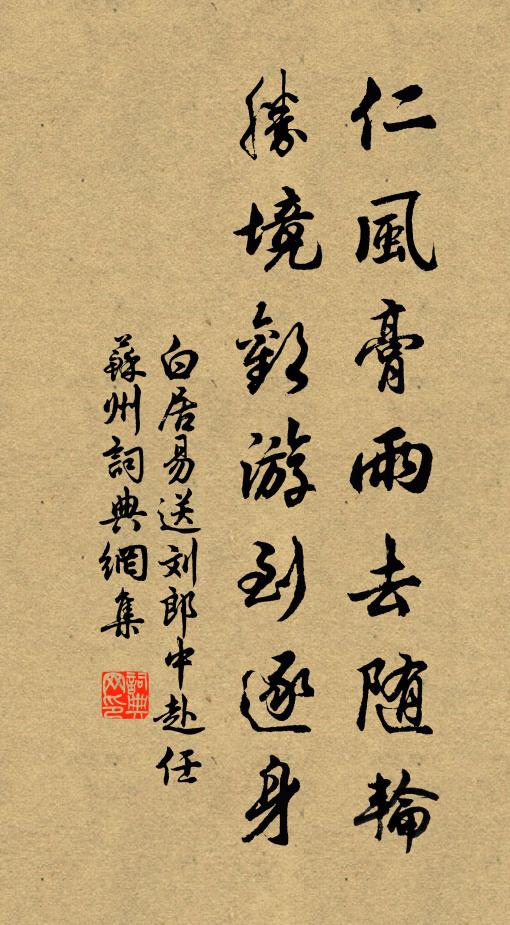 仁風膏雨去随輪
勝境歡游到逐身
白居易送刘郎中赴任
蘇州詞典網集
詞典
网印